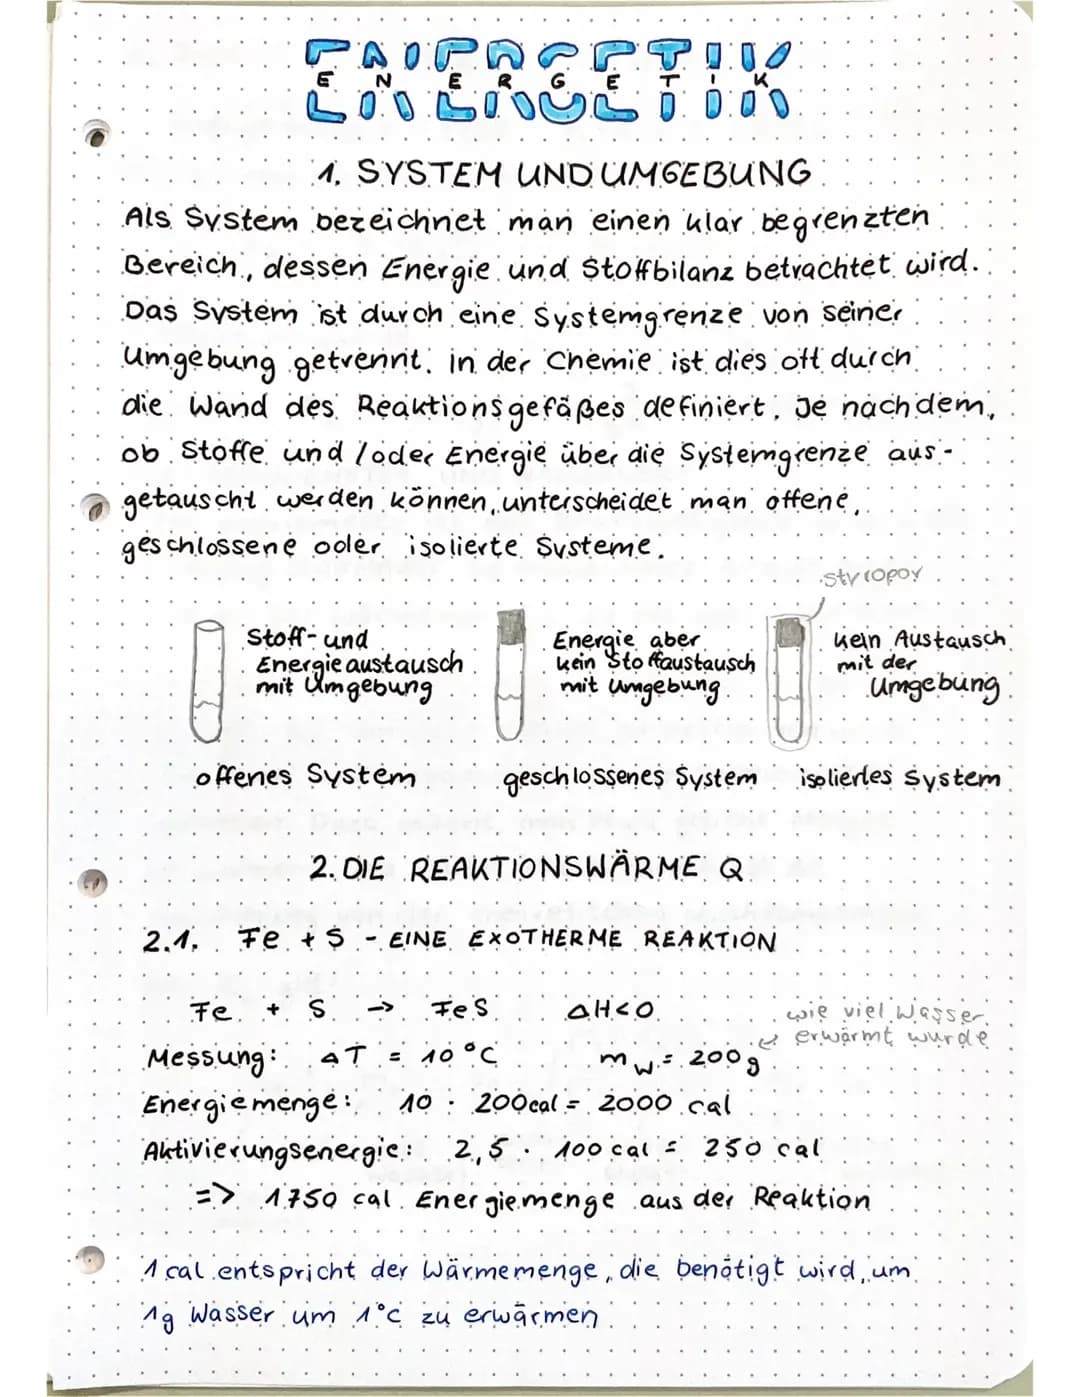 ENERGETIK
1. SYSTEM UND UMGEBUNG
Als System bezeichnet man einen klar begrenzten
Bereich, dessen Energie und Stoffbilanz betrachtet wird.
Das System ist durch eine Systemgrenze von seiner
Umgebung getrennt. in der Chemie ist dies oft durch
die Wand des Reaktionsgefäßes definiert. Je nachdem,
ob Stoffe und/oder Energie über die Systemgrenze aus-
getauscht werden können, unterscheidet man offene,
geschlossene oder isolierte Systeme.
styropor
Stoff- und
Energieaustausch
mit Umgebung
offenes System
Energie aber
kein Stoffaustausch
mit Umgebung
geschlossenes System
kein Austausch
mit der
Umgebung
isoliertes System
2. DIE REAKTIONSWÄRME Q
2.1. Fe + S - EINE EXOTHERME REAKTION
Fe + S → FeS ΔH<0
wie viel Wasser
erwärmt wurde
Messung: ΔT = 10°C mw = 200g
Energiemenge: 10 · 200cal = 2000 cal
Aktivierungsenergie: 2,5 · 100 cal = 250 cal
=> 1750 cal Energiemenge aus der Reaktion
1 cal entspricht der Wärmemenge, die benötigt wird, um
1g Wasser um 1°C zu erwärmen